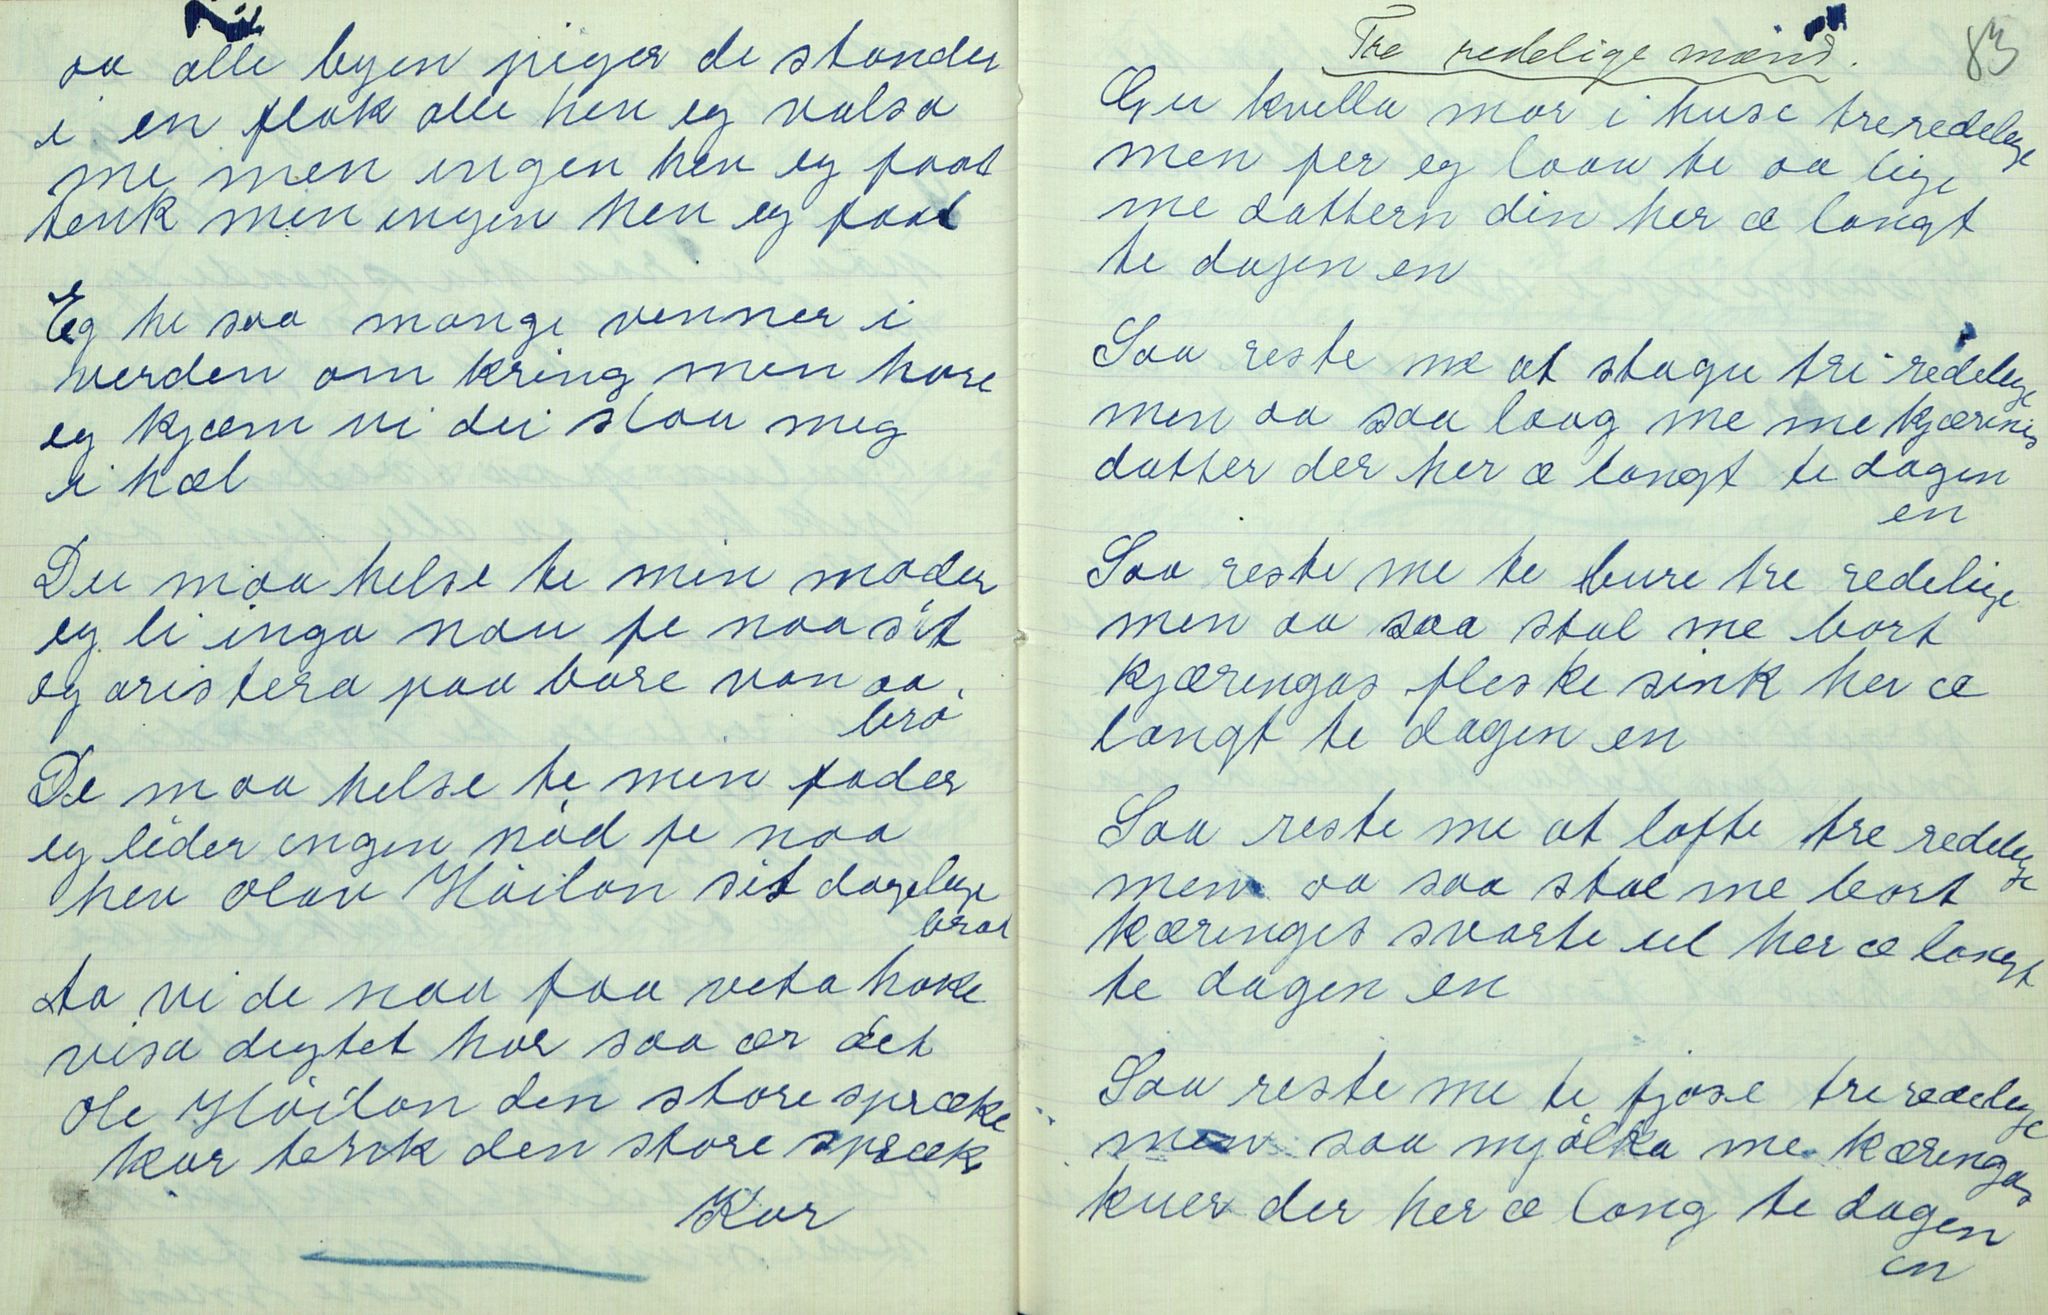 oa alle byen piger de stander
i en flok alle hen eg valsa
me men ingen hen eg faat
tenk men ingen hen eg faat
Eg he saa mange venner i
verden om kring men hore
eg kjæm vi dei slaa meg
i hæl
Du maa helse te min moder
eg li inga nau fe naa sit
eg arister a paa bare van oa
brø
De maa helse te min fader
eg lider ingen nød fe naa
hen Olav Høilan sit dagelige
brød
ta vi de nau faa veta hoke
visa degtet har saa ær det
Ole Høilan den store spræke
kar tenk den store spræke
Kar
Tre redelige mænd.
83
Gu kvella mor i huse tre redelege
men per eg laau te oa lige
me dattern din her æ langt
te dagen en
Saa reste me at stagu tri redelege
men oa saa laag me me kjæringis
datter der her æ langt te dagen
en
Saa reste me te bure tre redelige
men oa saa stal me bort
kjæringas fleske sink her æ
langt te dagen en
Saa reste me at lofte tre redelege
men oa saa stal me bort
kæringes svarte ul her æ langt
te dagen en
Saa reste me te fjøse tre redelege
men saa mjølka me kæringas
kuer der her æ lang te dagen
en